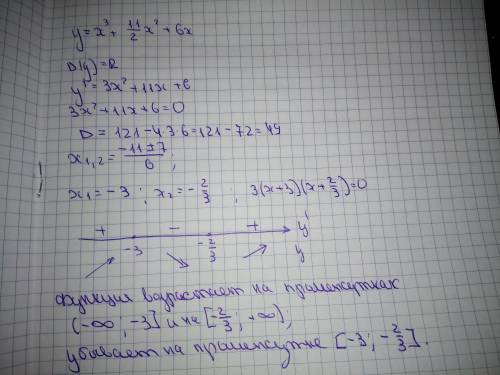 y = x³ + 11/2 x² + 6x
D(y) = R
y' = 3x² + 11x + 6
3x² + 11x + 6 = 0
D = 121 - 4·3·6 = 121 - 72 = 49
x₁,₂ = (-11 ± 7)/6 ;
x₁ = -3 ; x₂ = -2/3 ; 3(x+3)(x+2/3) = 0
+ - + y'
-3 -2/3 y
функция возрастает на промежутках
(-∞; -3] и на [-2/3; +∞),
убывает на промежутке [-3; -2/3].